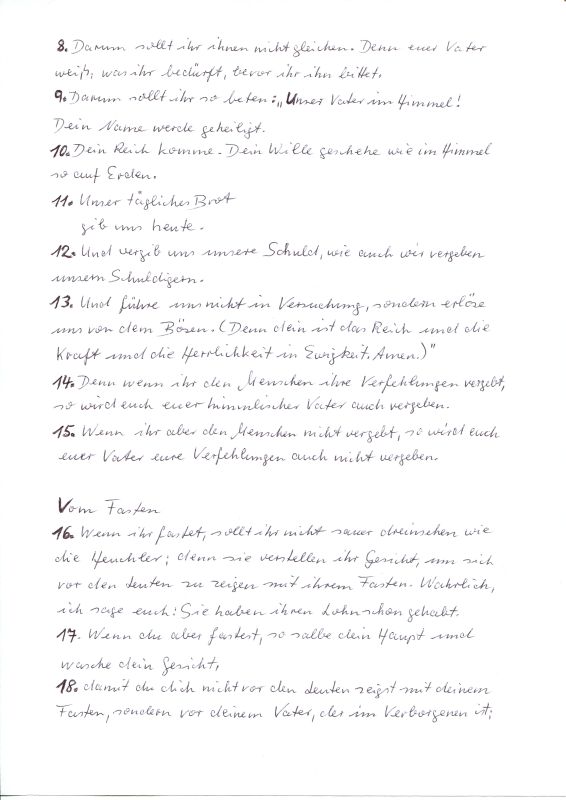 8. Darum sollt ihr ihnen nicht gleichen. Denn euer Vater
weiß, was ihr bedürft, bevor ihr ihn bittet.
9. Darum sollt ihr so beten: „Unser Vater im Himmel!
Dein Name werde geheiligt.
10. Dein Reich komme. Dein Wille geschehe wie im Himmel
so auf Erden.
11. Unser tägliches Brot
gib uns heute.
12. Und vergib uns unsere Schuld, wie auch wir vergeben
unsern Schuldigern.
13. Und führe uns nicht in Versuchung, sondern erlöse
uns von dem Bösen. (Denn dein ist das Reich und die
Kraft und die Herrlichkeit in Ewigkeit. Amen.)"
14. Denn wenn ihr den Menschen ihre Verfehlungen vergebt,
so wird euch euer himmlischer Vater auch vergeben.
15. Wenn ihr aber den Menschen nicht vergebt, so wird euch
euer Vater eure Verfehlungen auch nicht vergeben.
Vom Fasten
16. Wenn ihr fastet, sollt ihr nicht sauer dreinsehen wie
die Heuchler; denn sie verstellen ihr Gesicht, um sich
vor den Leuten zu zeigen mit ihrem Fasten. Wahrlich,
ich sage euch: Sie haben ihren Lohn schon gehabt.
17. Wenn du aber fastest, so salbe dein Haupt und
wasche dein Gesicht,
18. damit du dich nicht vor den Leuten zeigst mit deinem
Fasten, sondern vor deinem Vater, der im Verborgenen ist;